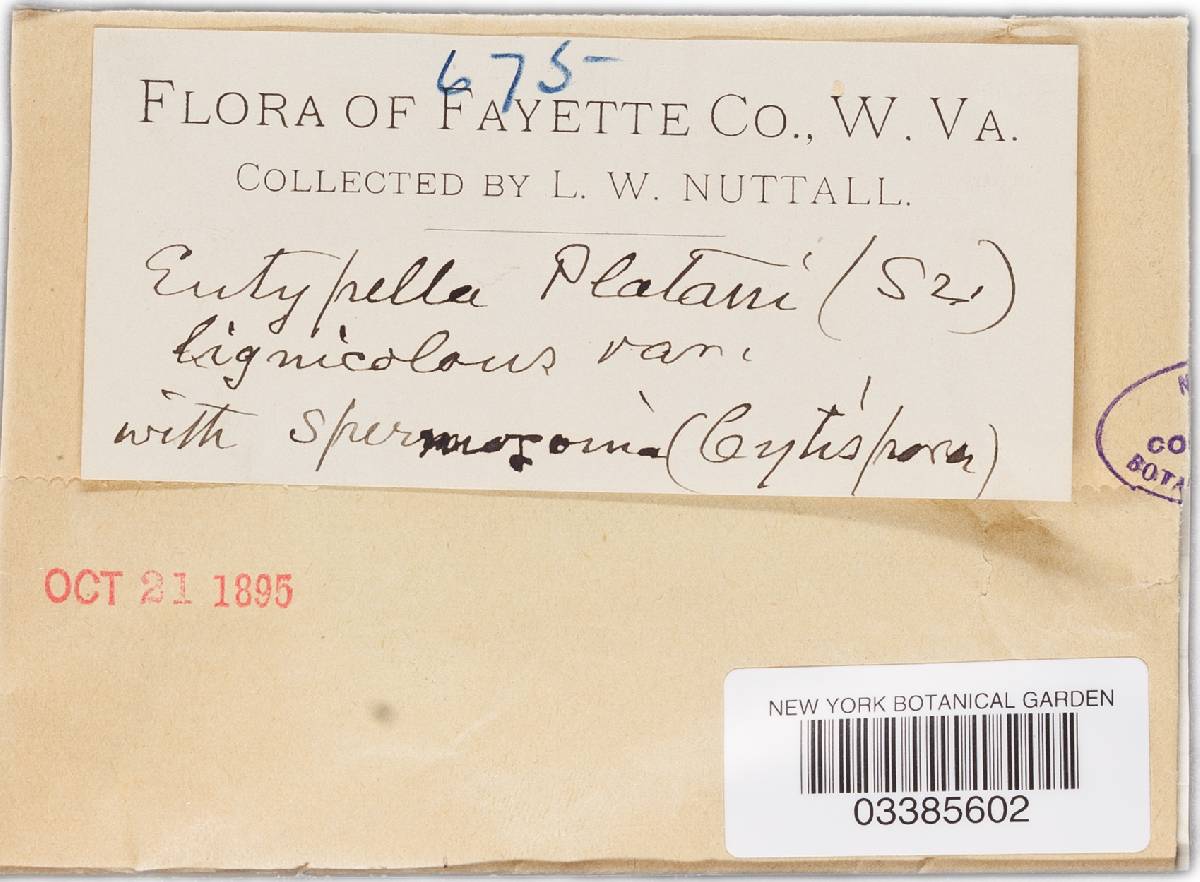 675
FLORA OF FAYETTE CO., W. VA.
COLLECTED BY L. W. NUTTALL.
Eutypella Platani (Sz.)
lignicolous var.
with (Cytispora)
CO
BOTA
OCT 21 1895
NEW YORK BOTANICAL GARDEN
03385602